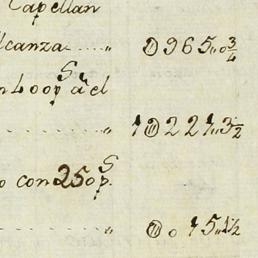 Capellan
lcanza.... „ 965„0¾
n 400 p.S a el
1221„3½
o con 250 p.S
015„1½